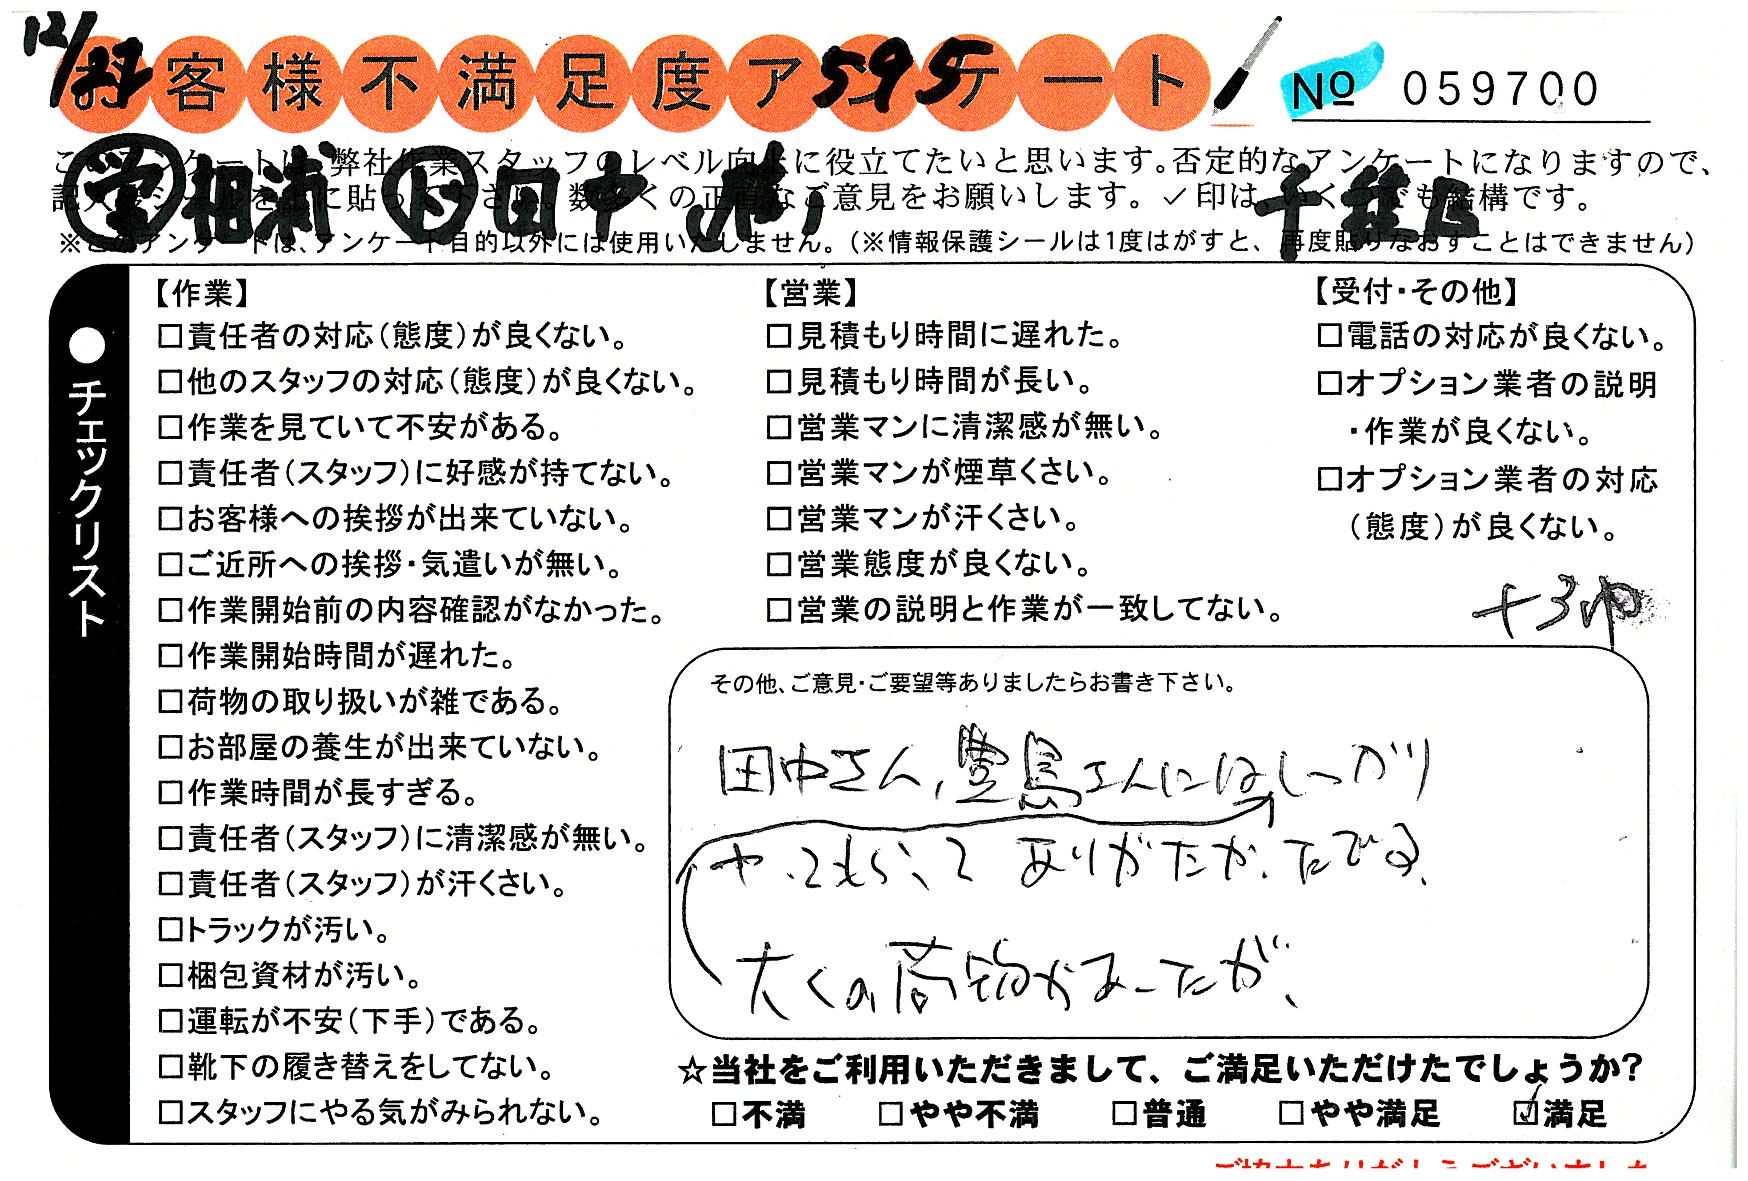 12/27
お客様不満足度アンケート
595
No 059700
このアンケートは、弊社作業スタッフのレベル向上に役立てたいと思います。否定的なアンケートになりますので、
記入後シールを上に貼って下さい。数多くの正直なご意見をお願いします。✓印は、いくつでも結構です。
営 相浦 ド 田中
千種区
※このアンケートは、アンケート目的以外には使用いたしません。（※情報保護シールは1度はがすと、再度貼りなおすことはできません）
●チェックリスト
【作業】
□責任者の対応（態度）が良くない。
□他のスタッフの対応（態度）が良くない。
□作業を見ていて不安がある。
□責任者（スタッフ）に好感が持てない。
□お客様への挨拶が出来ていない。
□ご近所への挨拶・気遣いが無い。
□作業開始前の内容確認がなかった。
□作業開始時間が遅れた。
□荷物の取り扱いが雑である。
□お部屋の養生が出来ていない。
□作業時間が長すぎる。
□責任者（スタッフ）に清潔感が無い。
□責任者（スタッフ）が汗くさい。
□トラックが汚い。
□梱包資材が汚い。
□運転が不安（下手）である。
□靴下の履き替えをしてない。
□スタッフにやる気がみられない。
【営業】
□見積もり時間に遅れた。
□見積もり時間が長い。
□営業マンに清潔感が無い。
□営業マンが煙草くさい。
□営業マンが汗くさい。
□営業態度が良くない。
□営業の説明と作業が一致してない。
【受付・その他】
□電話の対応が良くない。
□オプション業者の説明
・作業が良くない。
□オプション業者の対応
（態度）が良くない。
その他、ご意見・ご要望等ありましたらお書き下さい。
田中さん、豊島さんにはしっかり
やってもらって ありがたかったである。
大くの荷物があったが、
☆当社をご利用いただきまして、ご満足いただけたでしょうか？
□不満 □やや不満 □普通 □やや満足 ☑満足
ご協力ありがとうございました